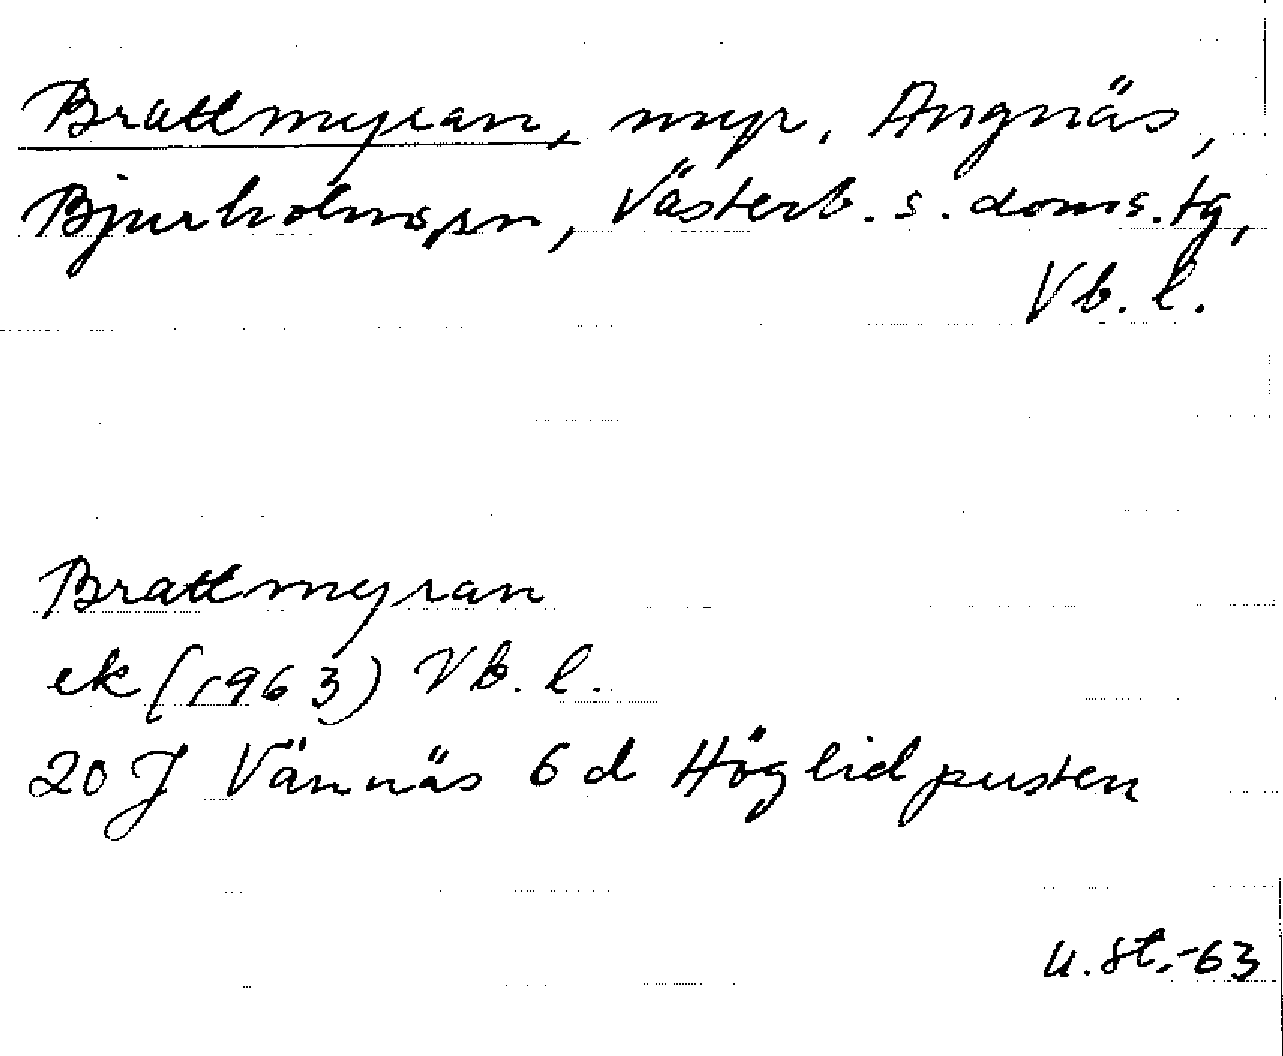 Brattmyran, myr, Angnäs,
Bjurholms sn, Västerb. s. doms. tg,
Vb. l.
Brattmyran
ek (1963) Vb. l.
20 J Vännäs 6 d Höglidpusten
U. St. -63